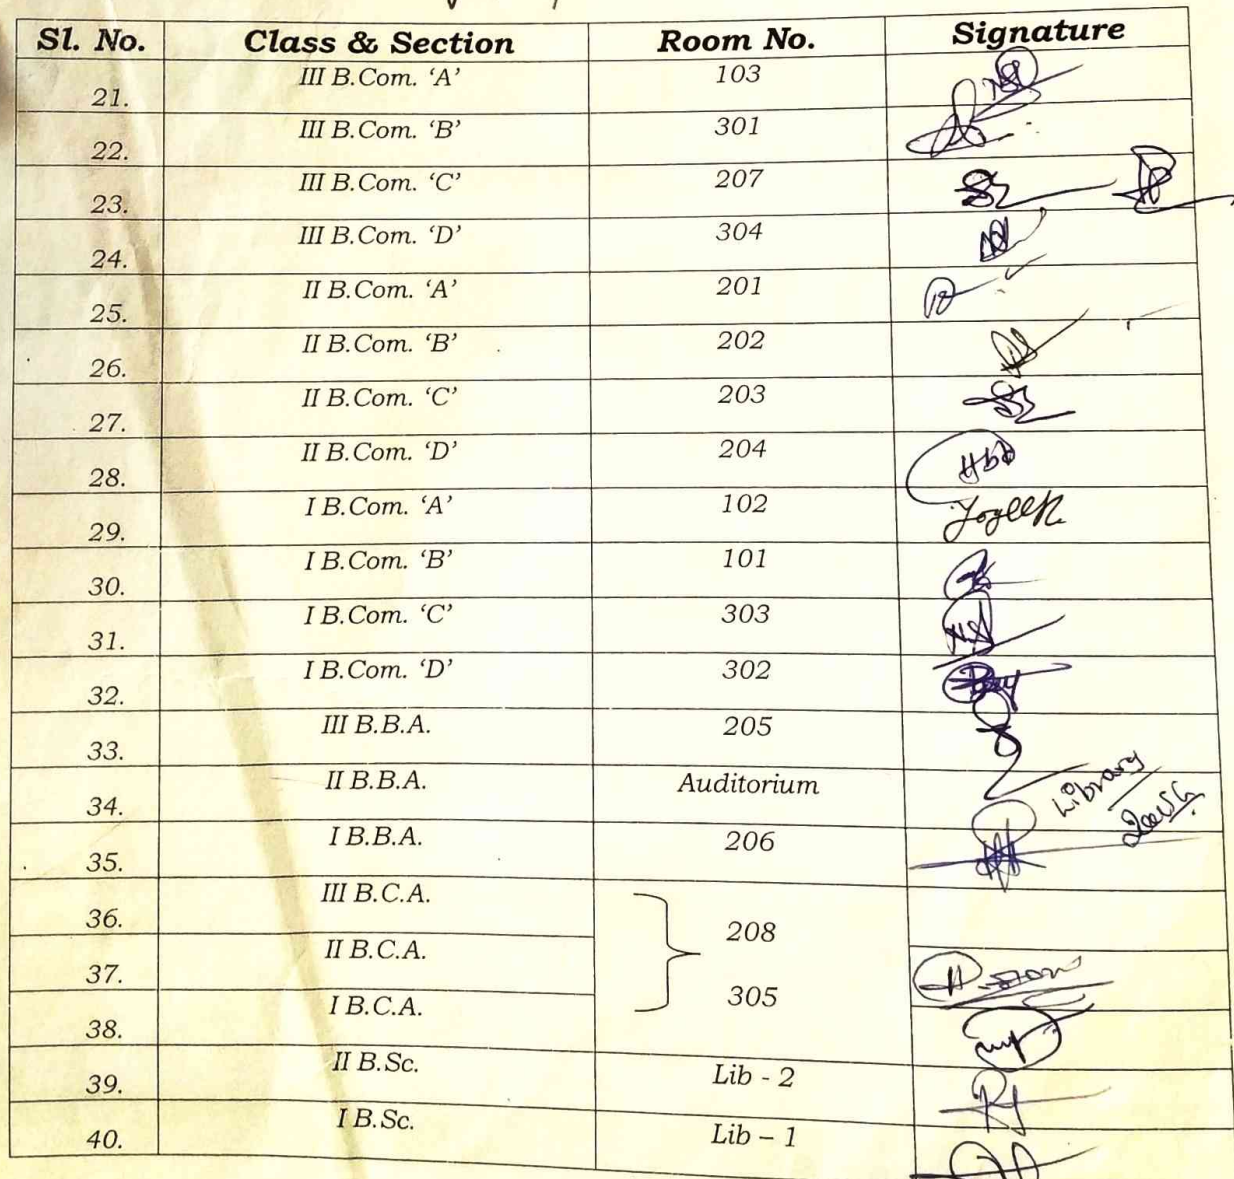 Sl. No. Class & Section Room No. Signature
21. III B.Com. ‘A’ 103
22. III B.Com. ‘B’ 301
23. III B.Com. ‘C’ 207
24. III B.Com. ‘D’ 304
25. II B.Com. ‘A’ 201
26. II B.Com. ‘B’ 202
27. II B.Com. ‘C’ 203
28. II B.Com. ‘D’ 204
29. I B.Com. ‘A’ 102
30. I B.Com. ‘B’ 101
31. I B.Com. ‘C’ 303
32. I B.Com. ‘D’ 302
33. III B.B.A. 205
34. II B.B.A. Auditorium Library
35. I B.B.A. 206
36. III B.C.A. 208
37. II B.C.A.
38. I B.C.A. 305
39. II B.Sc. Lib - 2
40. I B.Sc. Lib – 1